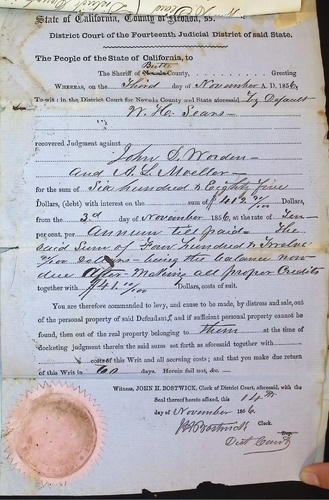 State of California, County of Nevada, ss.
District Court of the Fourteenth Judicial District of said State.
The People of the State of California, to
Butte
The Sheriff of Nevada County, Greeting
WHEREAS, on the Third day of November A. D. 1856,
To wit: in the District Court for Nevada County and State aforesaid, by Default
W. H. Sears
recovered Judgment against
John S. Worden
And A. L. Moeller
for the sum of Six hundred & Eighty five
Dollars, (debt) with interest on the sum of $412 Dollars,
from the 3d day of November 1856, at the rate of Ten
per cent. per Annum till paid The
said Sum of Four hundred & Twelve
Dollars being the balance now
due After Making all proper Credits
together with $41 Dollars, costs of suit.
You are therefore commanded to levy, and cause to be made, by distress and sale, out
of the personal property of said Defendants, and if sufficient personal property cannot be
found, then out of the real property belonging to them at the time of
docketing judgment therein the said sum set forth as aforesaid together with
costs of this Writ and all accruing costs; and that you make due return
of this Writ in 60 days. Herein fail not, &c.
Witness, JOHN H. BOSTWICK, Clerk of District Court, aforesaid, with the
Seal thereof hereto affixed, this 14th
day of November 1856.
J H Bostwick Clerk.
Dist Court